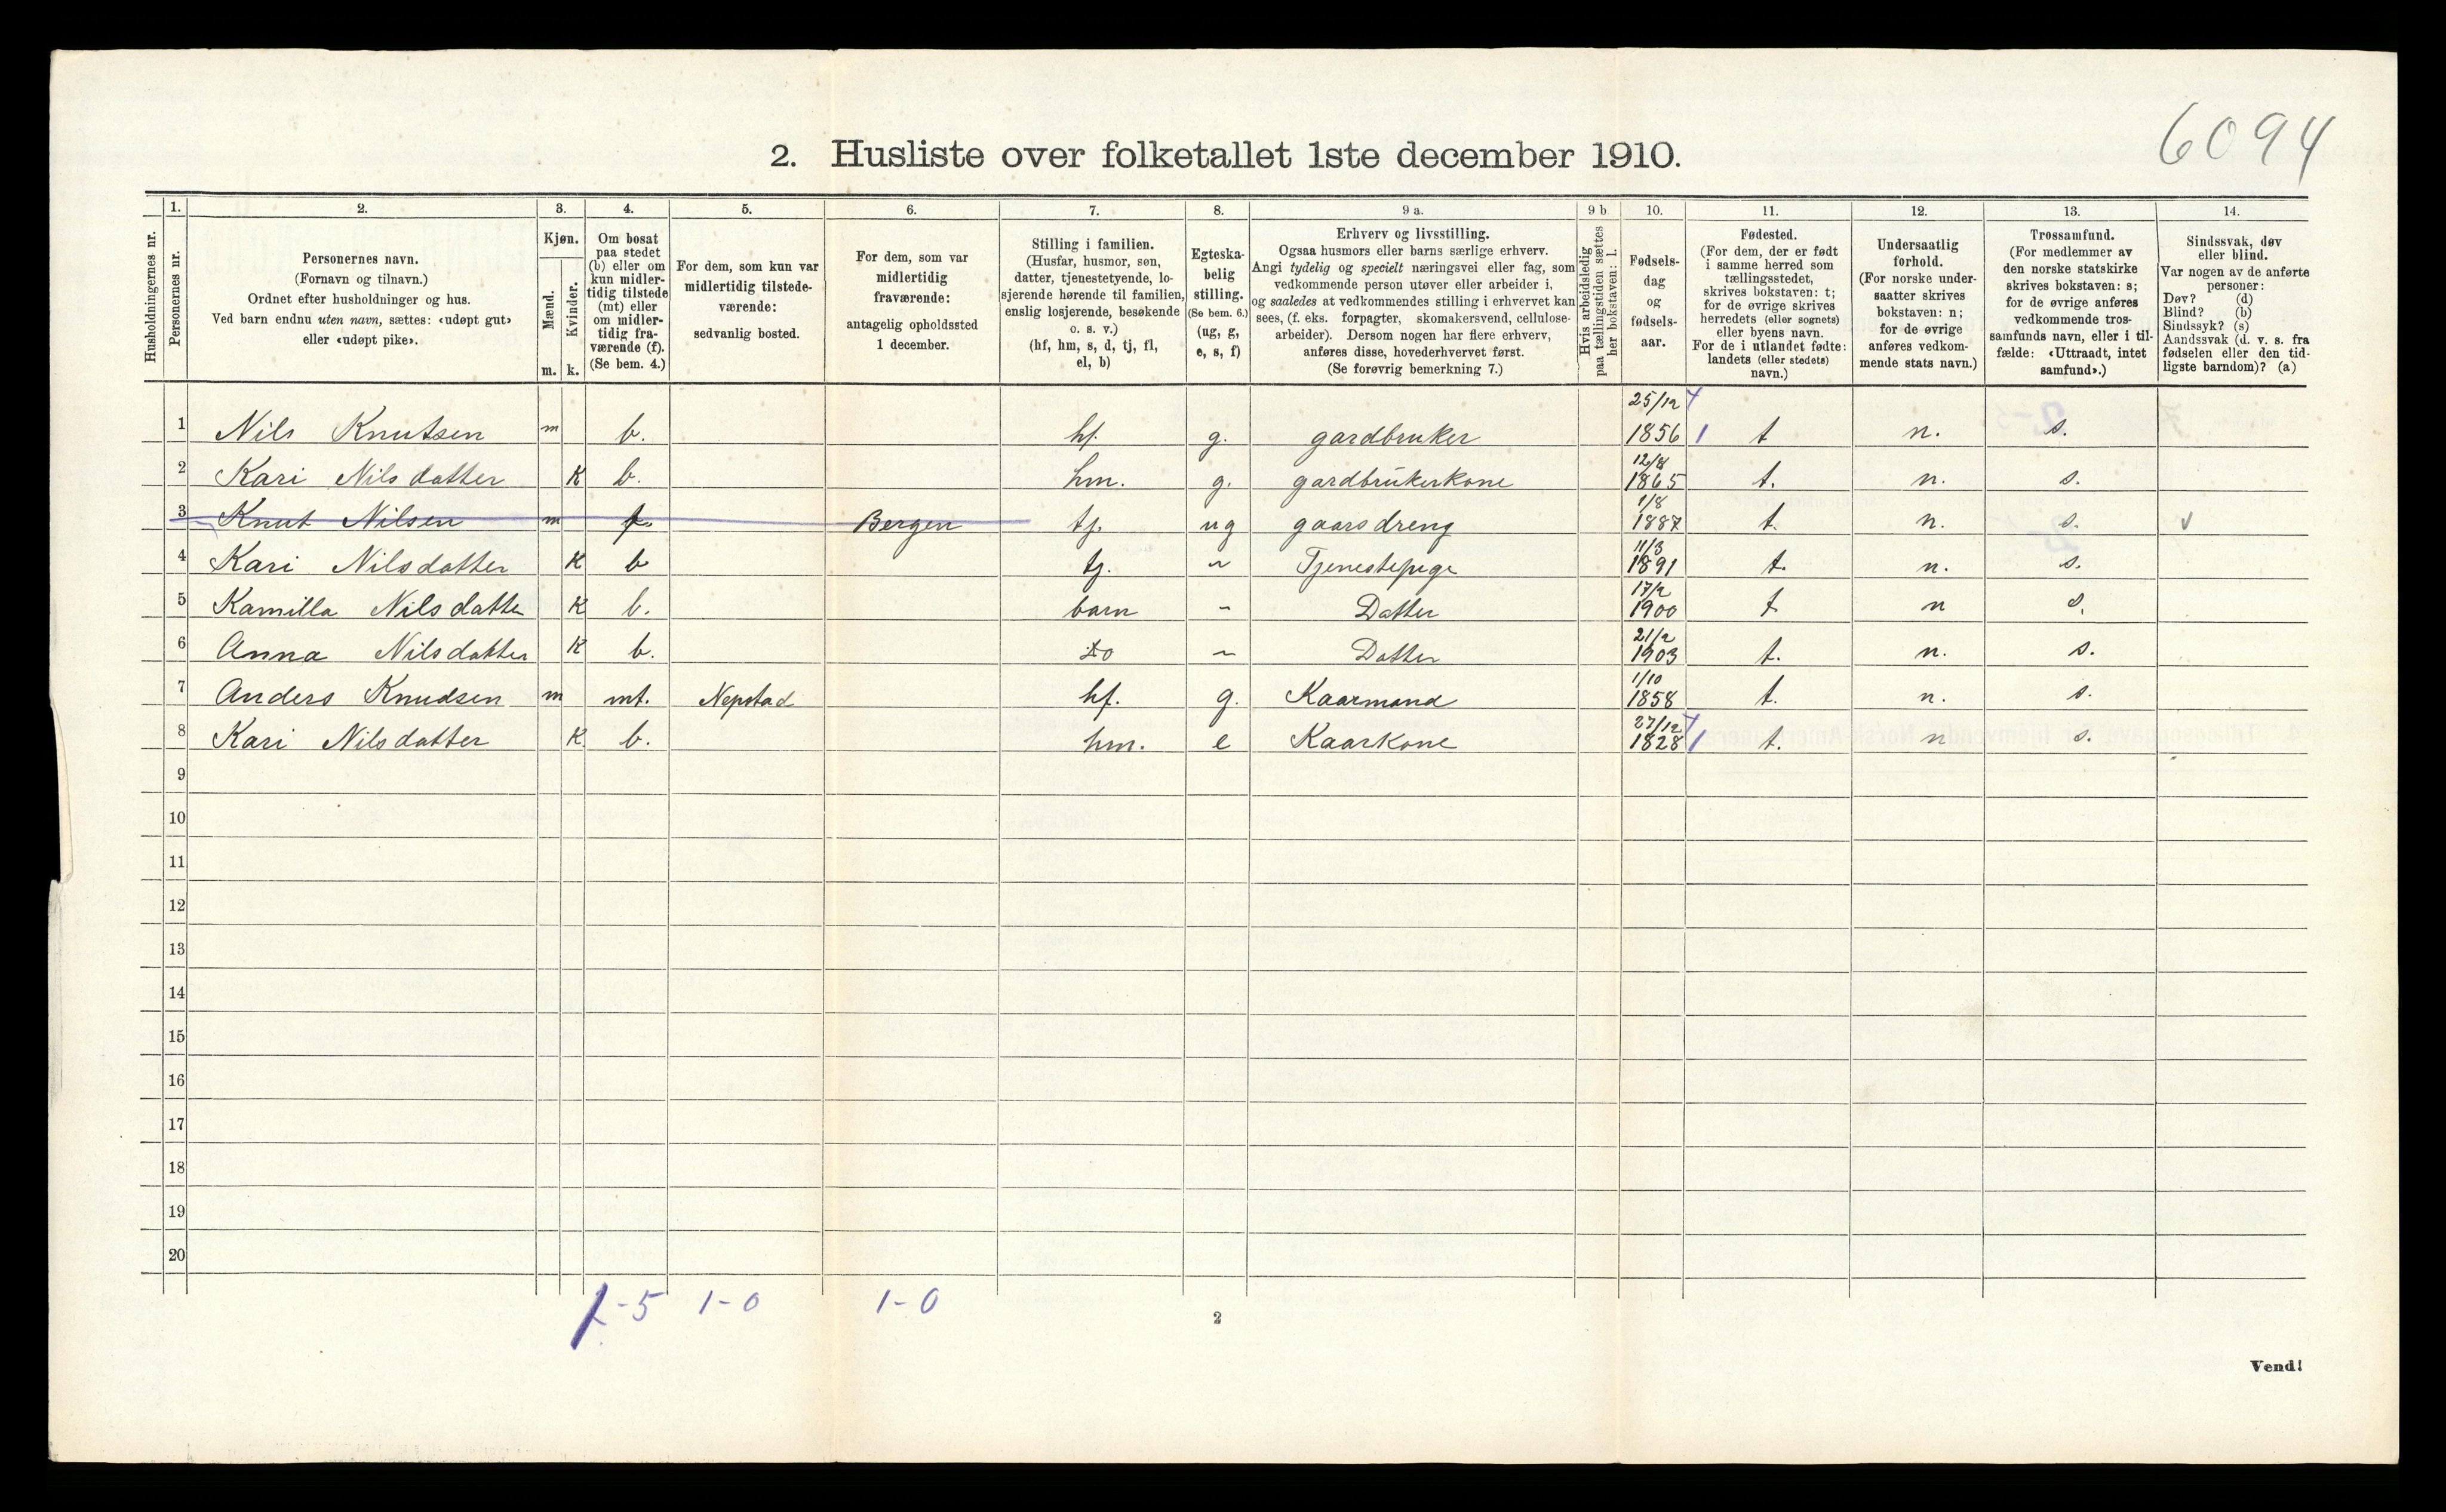 6094
2. Husliste over folketallet 1ste december 1910.
Husholdningernes nr.
1.
Personernes nr.
2.
Personernes navn.
(Fornavn og tilnavn.)
Ordnet efter husholdninger og hus.
Ved barn endnu uten navn, sættes: «udøpt gut»
eller «udøpt pike».
3.
Kjøn.
Mænd.
m.
Kvinder.
k.
4.
Om bosat
paa stedet
(b) eller om
kun midler-
tidig tilstede
(mt) eller
om midler-
tidig fra-
værende (f).
(Se bem. 4.)
5.
For dem, som kun var
midlertidig tilstede-
værende:
sedvanlig bosted.
6.
For dem, som var
midlertidig
fraværende:
antagelig opholdssted
1 december.
7.
Stilling i familien.
(Husfar, husmor, søn,
datter, tjenestetyende, lo-
sjerende hørende til familien,
enslig losjerende, besøkende
o. s. v.)
(hf, hm, s, d, tj, fl,
el, b)
8.
Egteska-
belig
stilling.
(Se bem. 6.)
(ug, g,
e, s, f)
9 a.
Erhverv og livsstilling.
Ogsaa husmors eller barns særlige erhverv.
Angi tydelig og specielt næringsvei eller fag, som
vedkommende person utøver eller arbeider i,
og saaledes at vedkommendes stilling i erhvervet kan
sees, (f. eks. forpagter, skomakersvend, cellulose-
arbeider). Dersom nogen har flere erhverv,
anføres disse, hovederhvervet først.
(Se forøvrig bemerkning 7.)
9 b
Hvis arbeidsledig
paa tællingstiden sættes
her bokstaven: l.
10.
Fødsels-
dag
og
fødsels-
aar.
11.
Fødested.
(For dem, der er født
i samme herred som
tællingsstedet,
skrives bokstaven: t;
for de øvrige skrives
herredets (eller sognets)
eller byens navn.
For de i utlandet fødte:
landets (eller stedets)
navn.)
12.
Undersaatlig
forhold.
(For norske under-
saatter skrives
bokstaven: n;
for de øvrige
anføres vedkom-
mende stats navn.)
13.
Trossamfund.
(For medlemmer av
den norske statskirke
skrives bokstaven: s;
for de øvrige anføres
vedkommende tros-
samfunds navn, eller i til-
fælde: «Uttraadt, intet
samfund».)
14.
Sindssvak, døv
eller blind.
Var nogen av de anførte
personer:
Døv? (d)
Blind? (b)
Sindssyk? (s)
Aandssvak (d. v. s. fra
fødselen eller den tid-
ligste barndom)? (a)
1 Nils Knutsen m b. hf. g. gardbruker 25/12 1856 1 t n. s.
2 Kari Nilsdatter K b. hm. g. gardbrukerkone 12/8 1865 t. n. s.
3 Knut Nilsen m f. Bergen tj. ug gaarsdreng 1/8 1887 t. n. s. v
4 Kari Nilsdatter K b tj. ~ Tjenestepige 11/3 1891 t. n. s.
5 Kamilla Nilsdatte K b. barn ~ Datter 17/2 1900 t n s.
6 Anna Nilsdatter K b. do ~ Datter 21/2 1903 t. n. s.
7 Anders Knudsen m mt. Nepstad hf. g. Kaarmand 1/10 1858 t. n. s.
8 Kari Nilsdatter K. b. hm. e Kaarkone 27/12 1828 1 t. n s.
9
10
11
12
13
14
15
16
17
18
19
20
1-5 1-0 1-0
2
Vend!